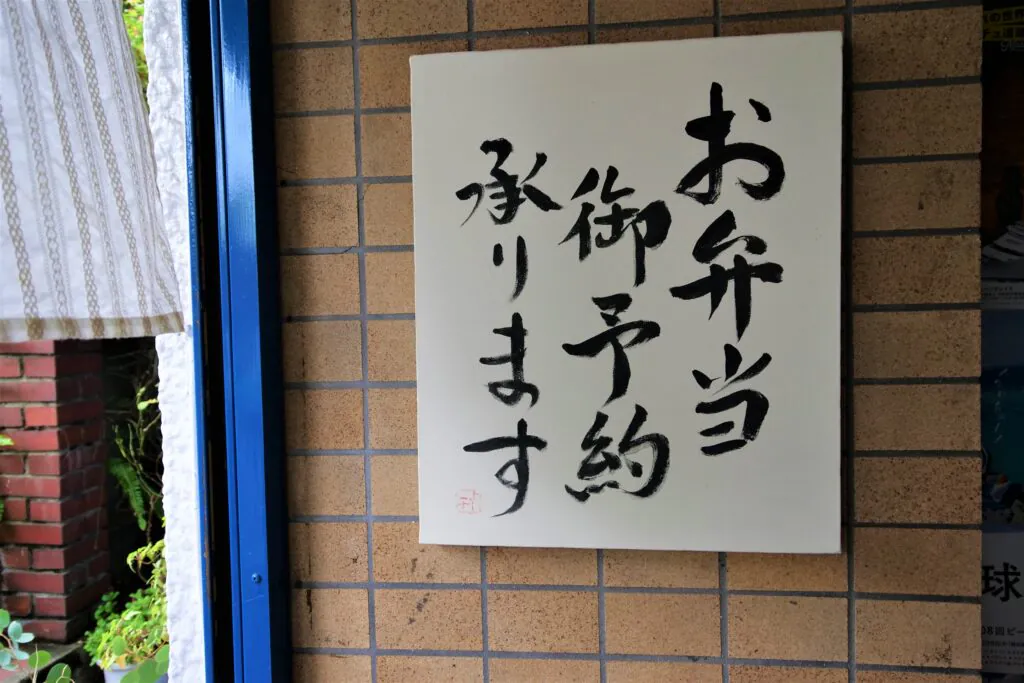 お弁当
御予約
承ります
球